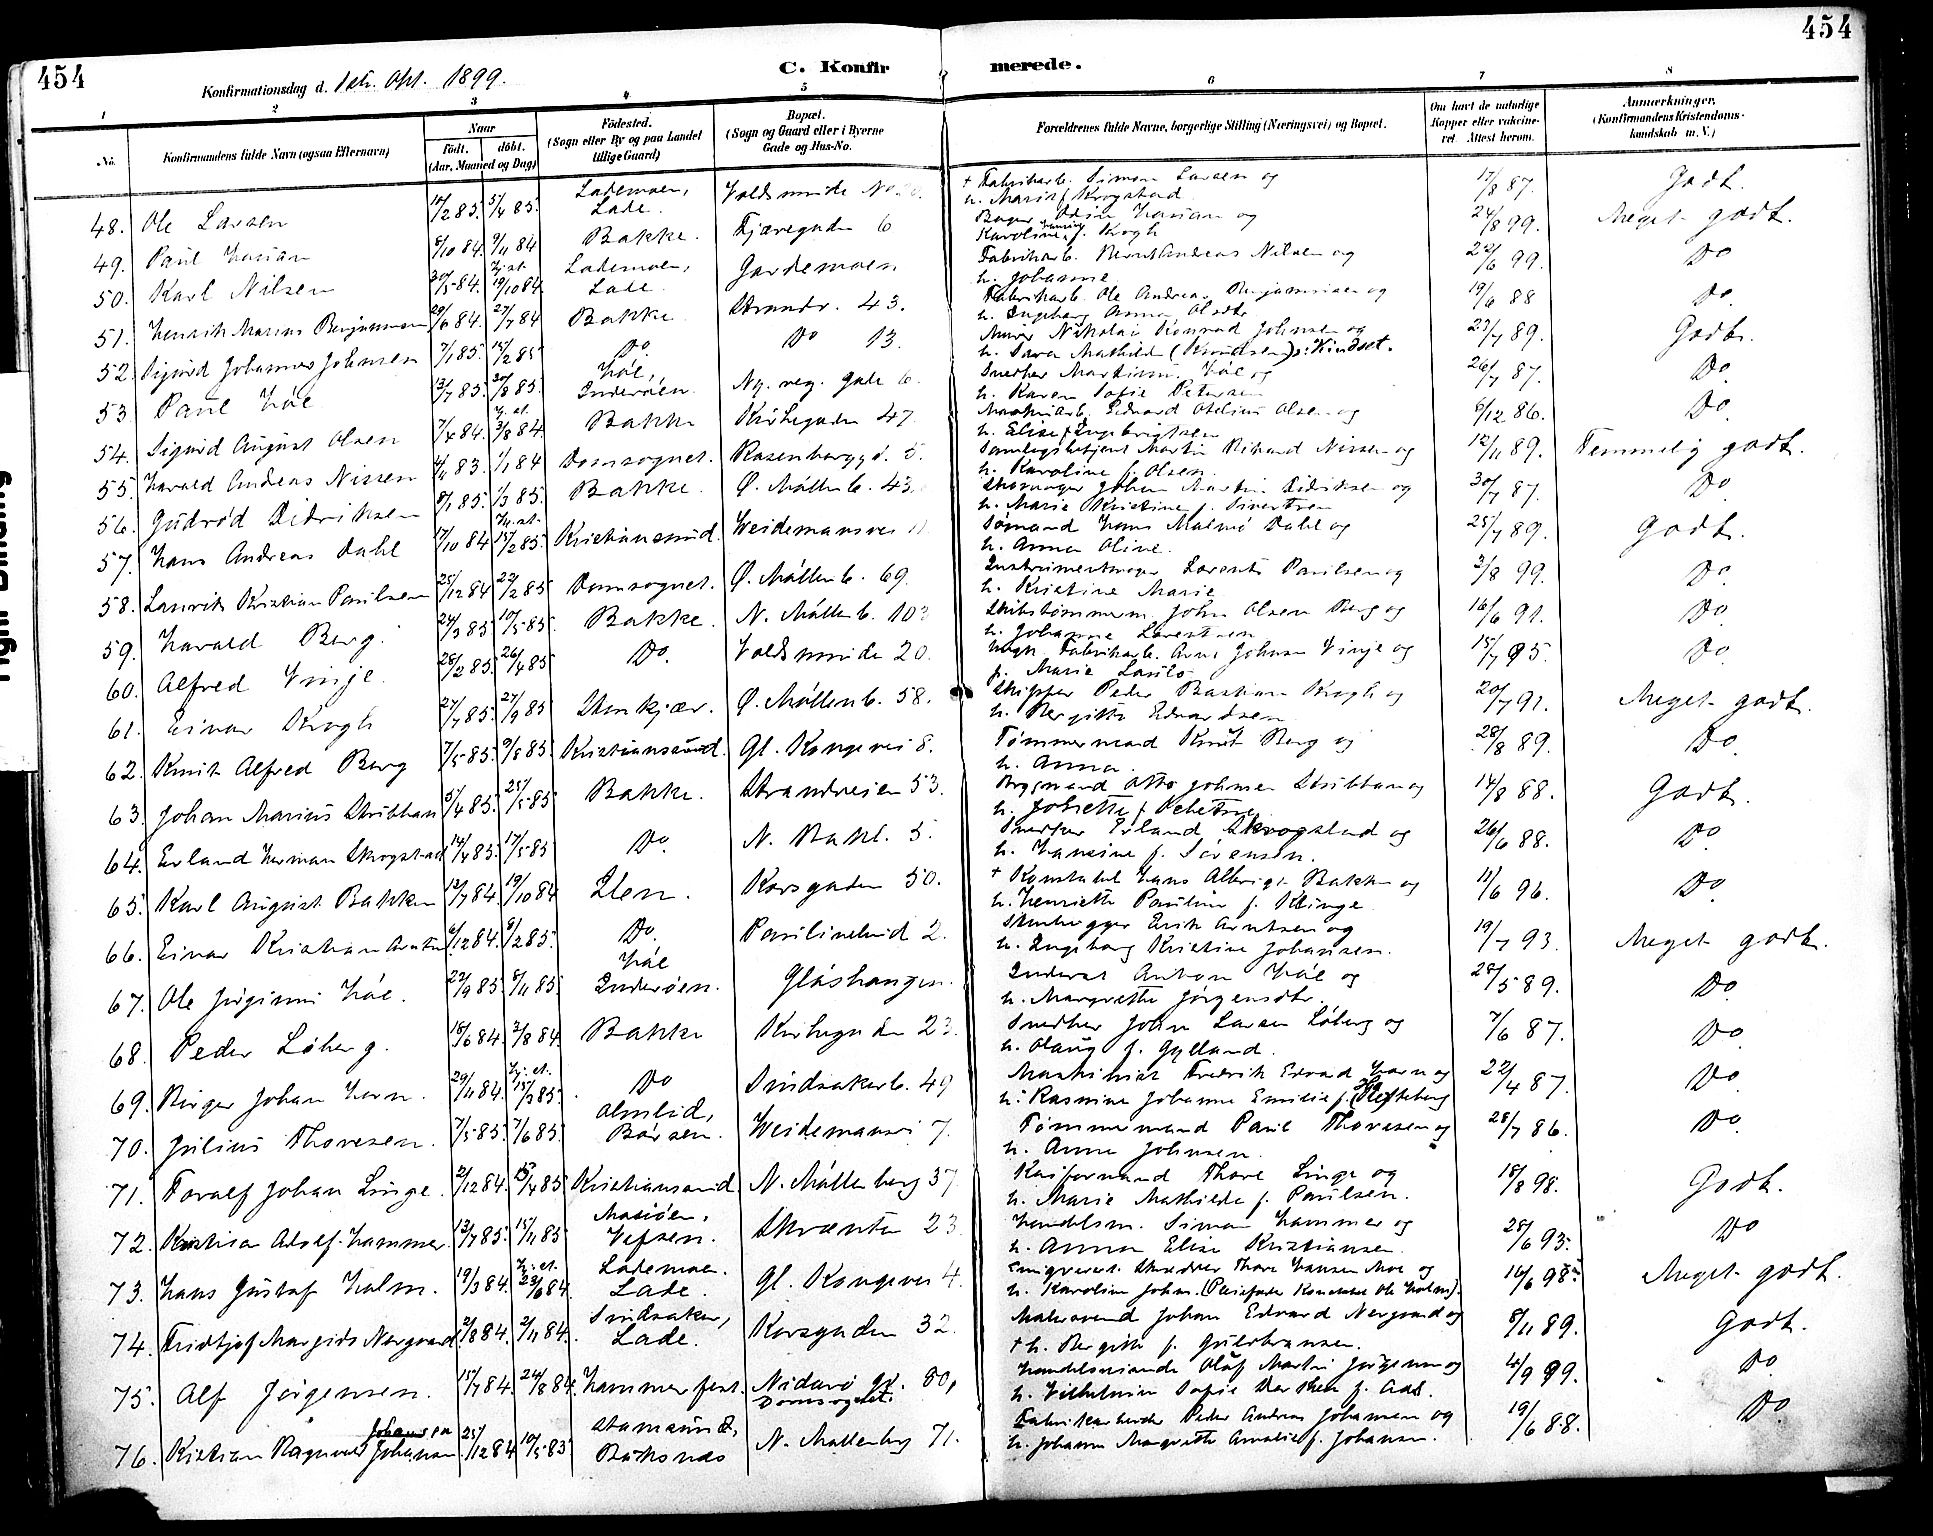 454
454
Konfirmationsdag d. 1ste Okt. 1899.
C. Konfir merede.
1 2 3 4 5 6 7 8
No.
Konfirmandens fulde Navn (ogsaa Efternavn)
Naar
Født. døbt.
(Aar, Maaned og Dag)
Fødested.
(Sogn eller By og paa Landet
tillige Gaard)
Bopæl.
(Sogn og Gaard eller i Byerne
Gade og Hus-No.
Forældrenes fulde Navne, borgerlige Stilling (Næringsvei) og Bopæl.
Om havt de naturlige
Kopper eller vaksine-
ret. Attest herom.
Anmærkninger,
(Konfirmandens Kristendoms-
kundskab m. V.)
48. Ole Larsen 14/2 85. 5/4 85. Lademoen, Lade. Voldsminde No + Fabrikarb. Simon Larsen og h. Marit f. Krogstad 17/8 87. Godt.
49. Paul 8/10 84. 9/11 84 Bakke. Fjæregaden 6 Bager og Karoline f. Krogh 24/8 99. Meget godt.
50. Karl Nilsen 30/5 84. Hj. dt. 19/10 84. Lademoen, Lade. Gardemoen Fabrikarb. Bernt Andreas Nilsen og h. Johanne 22/6 99. Do
51. Henrik Marius Benjaminsen 29/6 84. 27/7 84 Bakke Strandv. 43. Fabrikarb. Ole Andreas Benjaminsen og h. Ingeborg Anna Olsdtr 19/6 88 Do.
52. Sigurd Johannes Johnsen 7/1 85. 15/2 85 Do. Do 13. Murer Nikolai Konrad Johnsen og h. Sara Mathilde (Knudsen) : Kindset. 23/7 89. Godt.
53 Paul Høe 13/7 85. 30/8 85. Høe, Inderøen. Ny. veg. gade 6. Snedker Martinus Høe og h. Karen Sofie Petersen 26/7 87. Do.
54. Sigurd August Olsen 7/4 84. Hj. dt. 3/8 84. Bakke Kirkegaden 47. Maskinarb. Edvard Otelius Olsen og h. Elise f. Ingebrigtsen 8/12 86. Do
55. Harald Andreas Nissen 4/11 83. 1/1 84 Domsognet. Rosenborggd. 5. Martin Rikard Nissen og h. Karoline f. Olsen. 12/11 89. Temmelig godt.
56. Gudrød Didriksen 8/1 85. 1/3 85. Bakke. Ø. Møllenb. 43. Skomager Johan Martin Didriksen og h. Marie Kristine f. Sivertsen 30/7 87. Do
57. Hans Andreas Dahl 17/10 84 Hj. dt. 15/2 85. Kristianssund. Weidemansvei 11 Sømand Hans Malmø Dahl og h. Anna Oline. 25/7 89. Godt.
58. Laurits Kristian Paulsen 25/12 84 22/2 85. Domsognet. Ø. Møllenb. 69. Instrumentmager Lorents Paulsen og h. Kristine Marie 3/8 99. Do.
59. Harald Berg. 24/3 85 10/5 85. Bakke. N. Møllenb. 103 Skibstømmerm. John Olsen Berg og h. Johanne Lorentsen 16/6 91. Do
60. Alfred Vinje. 28/2 85. 26/4 85 Do. Voldsminde 20. Ugft. Fabrikarb. Arne Johnsen Vinje og p. Marie 15/7 95. Do
61. Einar Krogh 27/7 85. 27/9 85 Stenkjær. Ø. Møllenb. 58. Skipper Peder Bastian Krogh og h. Bergitte Edvardsen 20/7 91. Meget godt.
62. Knut Alfred Berg 7/5 85. 9/8 85 Kristianssund. Gl. Kongevei 8. Tømmermand Knut Berg og h. Anna. 28/8 89. Do
63. Johan Marius 5/4 85. 25/5 85 Bakke. Strandveien 53. Brygmand Otto Johnsen og h. f. 14/8 88. Godt.
64. Erland Herman Skrogstad 14/4 85. 17/5 85 Do. N. Bakl. 5. Snedker Erland Skrogstad og h. Hansine f. Sørensen. 26/6 88. Do.
65. Karl August Bakken 12/7 84. 19/10 84 Ilen. Korsgaden 50. + Konstabel Hans Albrigt Bakken og h. Henriette Pauline f. Klinge 11/6 96. Do
66. Einar Kristian Arntsen 6/12 84. 8/2 85. Do. Paulinelund 2. Stenhugger Erik Arntsen og h. Ingeborg Kristine Johansen. 19/7 93. Meget godt.
67. Ole Jørginus Høe. 22/9 85 8/11 85. Høe Inderøen. Gløshaugen. Inderst Anton Høe og h. Margrethe Jørgensdtr. 28/5 89. Do
68. Peder Løberg. 15/6 84 3/8 84. Bakke Kirkegaden 23. Snedker John Larsen Løberg og h. Olaug f. Gylland. 7/6 87. Do.
69. Birger Johan Horn. 29/11 84. Hj. dt. 15/3 85. Do Sindsakerb. 49 Maskinist Fredrik Edvard Horn og h. Rasmine Johanne Emilie f. Hefteberg 22/4 87. Do
70. Julius Thoresen. 7/5 85. 7/6 85. Almlid, Børsen. Weidemansvei 7. Tømmermand Paul Thoresen og h. Anna Johnsen. 28/7 86. Do.
71. Toralf Johan Linge. 2/12 84. 15/4 85 Kristianssund N. Møllenberg 37 Thore Linge og h. Marie Mathilde f. Paulsen. 18/8 98. Godt.
72. Kristian Adolf Hammer. 13/7 85. 15/11 85 Mosjøen, Vefsen. Skrænten 23 Handelsm. Simon Hammer og h. Anna Elise Kristiansen. 28/6 93. Do
73. Hans Gustaf Holm. 19/3 84. Hj. dt. 23/6 84. Lademoen. Lade. Gl. Kongevei 4. Emigreret Skrædder Thore Hansen Moe og h. Karoline Johns. (Pleiefader Ole Holm). 16/6 98. Meget godt.
74. Fridtjof Margido Norgaard 2/8 84. 2/11 84. Sindsaker, Lade. Korsgaden 32. Malersvend Johan Edvard Norgaard og + h. Bergitte f. Guldbransen. 8/11 89. Godt.
75. Alf Jørgensen. 15/7 84. 24/8 84. Hammerfest. Nidarø gd. 80, Domsognet. Handelsreisende Oluf Martin Jørgensen og h. Vilhelmine Sofie f. Aas. 4/9 99. Do
76. Kristian Ragnvald Johansen Johansen 25/12 84 10/5 85 Stamsund, Buksnes N. Møllenberg 71. Fabrikarbeider Peder Andreas Johansen og h. Johanna Margrethe Amalie f. Johansen. 19/6 88. Do